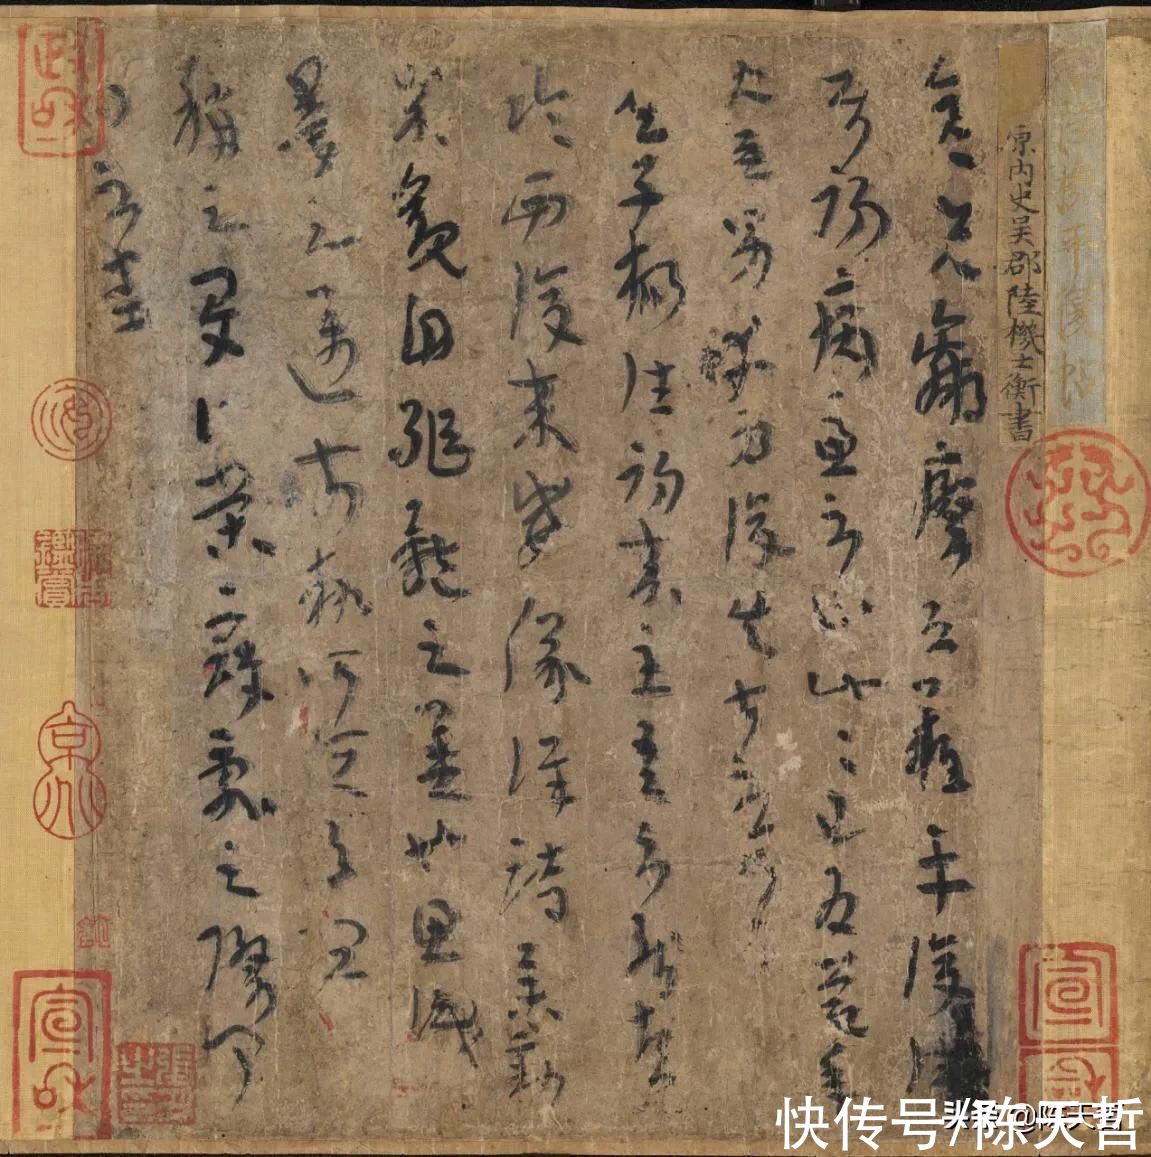 晉陸機平復帖
原內史吳郡陸機士衡書
彦先羸瘵恐難平復往屬
初病慮不止此此已為慶承
使唯男幸為復失前憂耳
吳子楊往初來主吾不能盡
臨西復來威儀詳跱舉動
成觀自軀體之美也思識
量之邁前執所恆有宜
稱之夏伯榮寇亂之際聞
問不悉
政和
宣和
快传号/陈天哲
头条 @陈天哲